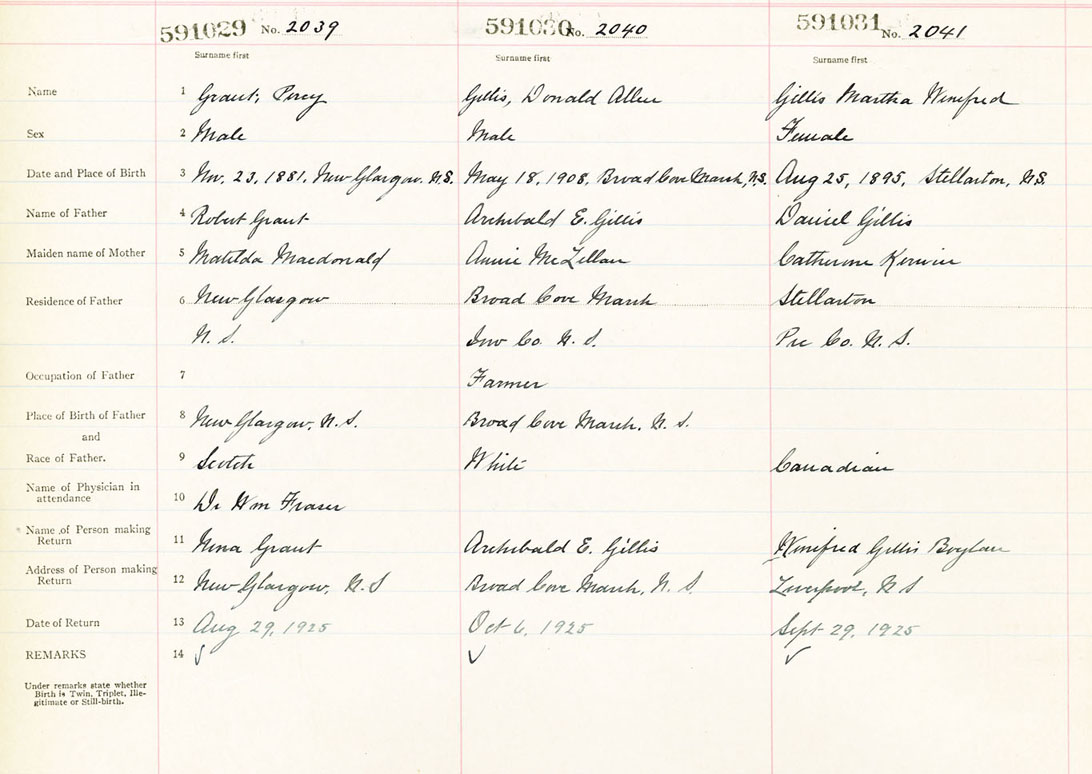 591029 No. 2039 591030 No. 2040 591031 No. 2041
Surname first Surname first Surname first
Name 1 Grant, Percy Gillis, Donald Allen Gillis Martha Winifred
Sex 2 Male Male Female
Date and Place of Birth 3 Nov. 23, 1881, New Glasgow, N.S. May 18, 1908, Broad Cove Marsh, N.S. Aug 25, 1895, Stellarton, N.S.
Name of Father 4 Robert Grant Archibald E. Gillis Daniel Gillis
Maiden name of Mother 5 Matilda Macdonald Annie McLellan Catherine Kerwin
Residence of Father 6 New Glasgow Broad Cove Marsh Stellarton
N. S. Inv Co. N. S. Pic Co. N. S.
Occupation of Father 7 Farmer
Place of Birth of Father 8 New Glasgow, N. S. Broad Cove Marsh, N. S.
and
Race of Father. 9 Scotch White Canadian
Name of Physician in
attendance 10 Dr Wm Fraser
Name of Person making
Return 11 Nina Grant Archibald E. Gillis Winifred Gillis Boylan
Address of Person making
Return 12 New Glasgow, N.S Broad Cove Marsh, N. S. Liverpool, N S
Date of Return 13 Aug 29, 1925 Oct 6, 1925 Sept 29, 1925
REMARKS 14
Under remarks state whether
Birth is Twin, Triplet, Ille-
gitimate or Still-birth.